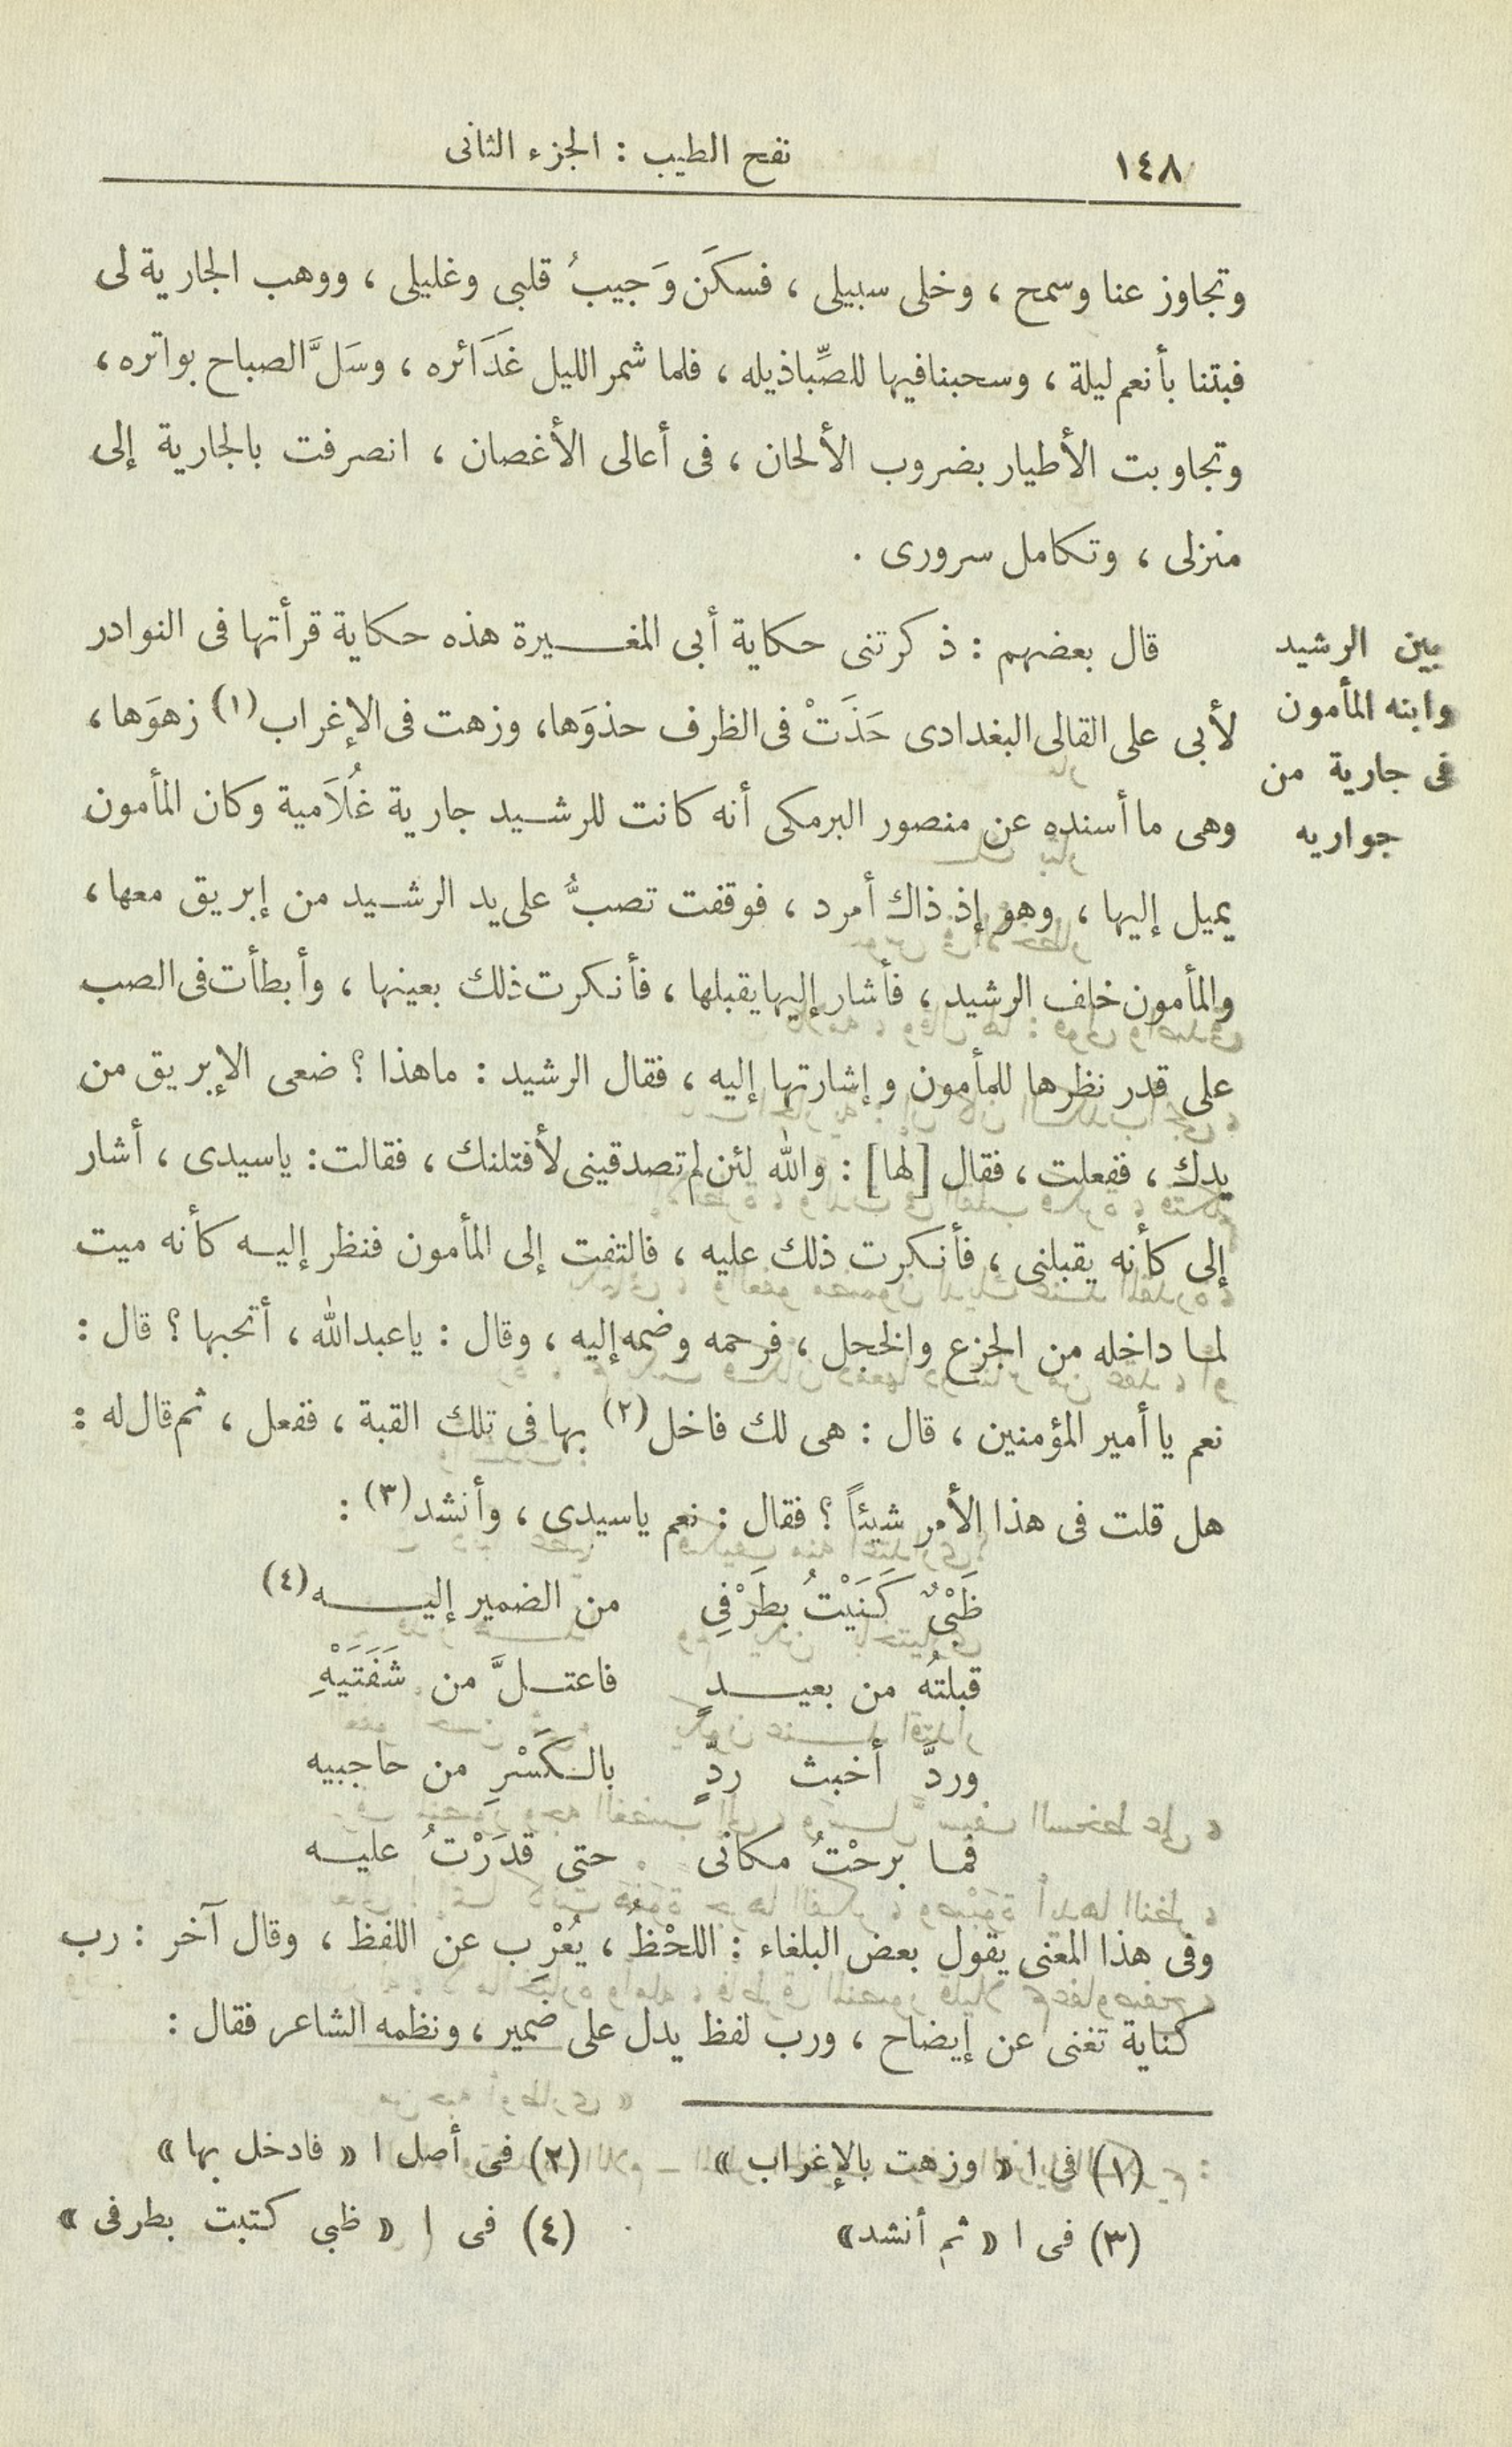 ١٤٨
نفح الطيب : الجزء الثانى
وتجاوز عنا وسمح ، وخلى سبيلى ، فسكَن وَجيبُ قلبى وغليلى ، ووهب الجارية لى
فبتنا بأنعم ليلة ، وسحبنا فيها للصِّبا ذيله ، فلما شمر الليل غَدَائره ، وسَلَّ الصباح بواتره ،
وتجاوبت الأطيار بضروب الألحان ، فى أعالى الأغصان ، انصرفت بالجارية إلى
منزلى ، وتكامل سرورى .
بين الرشيد
وابنه المأمون
فى جارية من
جواريه
قال بعضهم : ذكرتنى حكاية أبى المغيرة هذه حكاية قرأتها فى النوادر
لأبى على القالى البغدادى حَذَتْ فى الظرف حذوَها، وزهت فى الإغراب(١) زهوَها ،
وهى ما أسنده عن منصور البرمكى أنه كانت للرشيد جارية غُلَامية وكان المأمون
يميل إليها ، وهو إذ ذاك أمرد ، فوقفت تصبُّ على يد الرشيد من إبريق معها ،
والمأمون خلف الرشيد ، فأشار إليها يقبلها ، فأنكرت ذلك بعينها ، وأبطأت فى الصب
على قدر نظرها للمأمون وإشارتها إليه ، فقال الرشيد : ما هذا ؟ ضعى الإبريق من
يدك ، ففعلت ، فقال [لها] : والله لئن لم تصدقينى لأقتلنك ، فقالت : ياسيدى ، أشار
إلى كأنه يقبلنى ، فأنكرت ذلك عليه ، فالتفت إلى المأمون فنظر إليه كأنه ميت
لما داخله من الجزع والخجل ، فرحمه وضمه إليه ، وقال : ياعبدالله ، أتحبها ؟ قال :
نعم يا أمير المؤمنين ، قال : هى لك فاخل(٢) بها فى تلك القبة ، ففعل ، ثم قال له :
هل قلت فى هذا الأمر شيئاً ؟ فقال : نعم ياسيدى ، وأنشد(٣) :
ظَبْىٌ كَنَيْتُ بطَرْفِى من الضمير إليه(٤)
قبلتُه من بعيدٍ فاعتلَّ من شَفَتَيْهِ
وردَّ أخبث ردٍّ بالكَسْرِ من حاجبيه
فما برحْتُ مكانى حتى قدَرْتُ عليه
وفى هذا المعنى يقول بعض البلغاء : اللحْظُ ، يُعْرِب عن اللفظ ، وقال آخر : رب
كناية تغنى عن إيضاح ، ورب لفظ يدل على ضمير ، ونظمه الشاعر فقال :
(١) فى ا « وزهت بالإغراب » (٢) فى أصل ا « فادخل بها »
(٣) فى ا « ثم أنشد» (٤) فى ا « ظبى كتبت بطرفى »